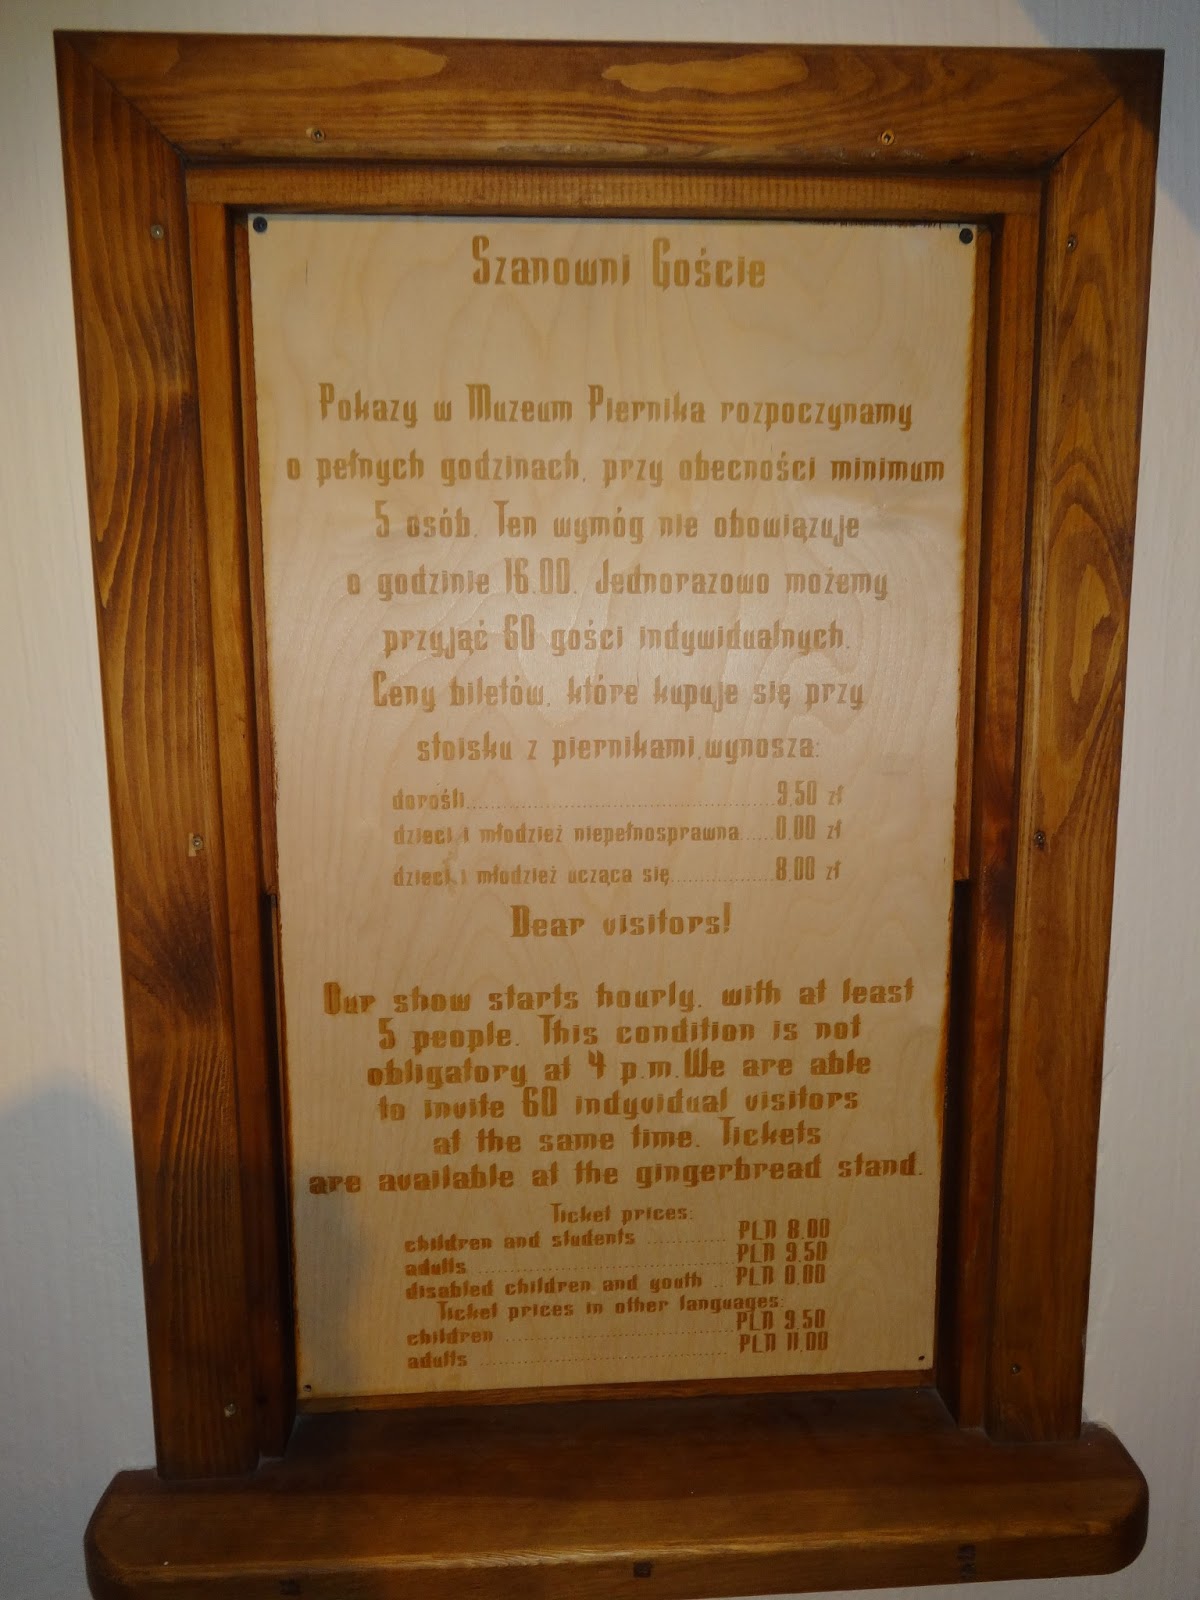 Szanowni Goście
Pokazy w Muzeum Piernika rozpoczynamy
o pełnych godzinach, przy obecności minimum
5 osób. Ten wymóg nie obowiązuje
o godzinie 16.00. Jednorazowo możemy
przyjąć 60 gości indywidualnych.
Ceny biletów, które kupuje się przy
stoisku z piernikami,wynoszą:
dorośli..............................................9,50 zł
dzieci i młodzież niepełnosprawna......0,00 zł
dzieci i młodzież ucząca się................8,00 zł
Dear visitors!
Our show starts hourly, with at least
5 people. This condition is not
obligatory at 4 p.m.We are able
to invite 60 indyvidual visitors
at the same time. Tickets
are available at the gingerbread stand.
Ticket prices:
children and students ............ PLN 8,00
adults....................................... PLN 9,50
disabled children and youth .. PLN 0,00
Ticket prices in other languages:
children .................................. PLN 9,50
adults ..................................... PLN 11,00